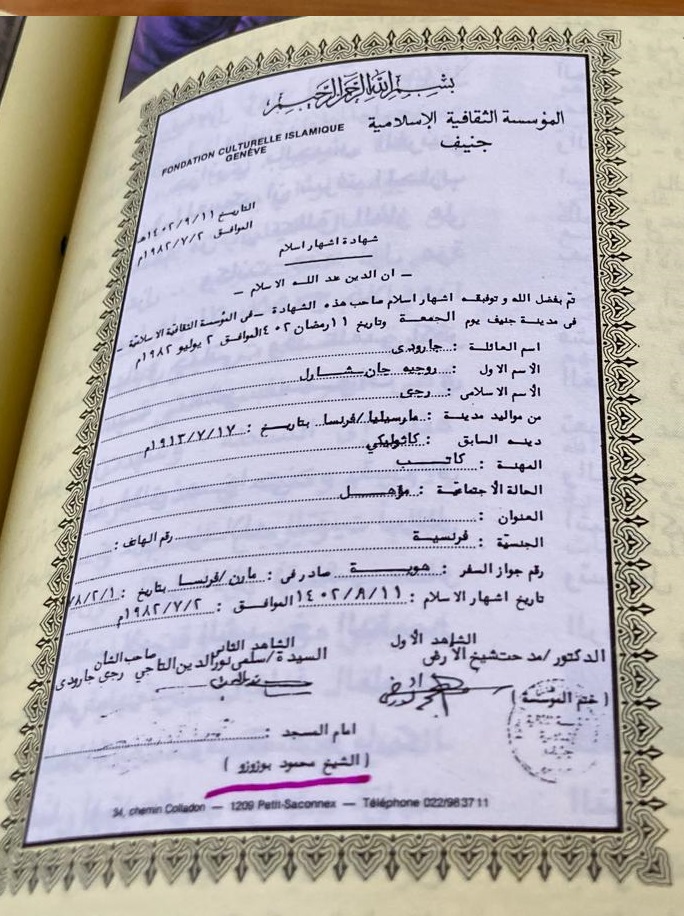 بسم الله الرحمن الرحيم
المؤسسة الثقافية الإسلامية
جنيف
FONDATION CULTURELLE ISLAMIQUE
GENÈVE
التاريخ ١٤٠٢/٩/١١هـ
الموافق ١٩٨٢/٧/٢م
شهادة اشهار اسلام
— ان الدين عند الله الاسلام —
تم بفضل الله و توفيقه اشهار اسلام صاحب هذه الشهادة - في المؤسسة الثقافية الاسلامية -
فى مدينة جنيف يوم الجمعة وتاريخ ١١ رمضان ١٤٠٢ الموافق ٢ يوليو ١٩٨٢م
اسم العائلة : جارودى
الأسم الاول : روجيه جان شارل
الأسم الاسلامى : رجى
من مواليد مدينة : مارسيليا/فرنسا بتاريخ : ١٩١٣/٧/١٧م
دينه السابق : كاثوليكي
المهنة : كاتب
الحالة الاجتماعية :
العنوان : رقم الهاتف :
الجنسية : فرنسية
رقم جواز السفر : هوية صادر فى : مارن/فرنسا بتاريخ :
تاريخ اشهار الاسلام : ١٤٠٢/٩/١١ الموافق : ١٩٨٢/٧/٢م
الشاهد الأول الشاهد الثانى صاحب الشأن
الدكتور/مدحت شيخ الأرض السيدة/سلمى نور الدين التاجي رجى جارودى
( ختم المؤسسة )
امام المسجد :
( الشيخ محمود بوزوزو )
34, chemin Colladon — 1209 Petit-Saconnex — Téléphone 022/98 37 11